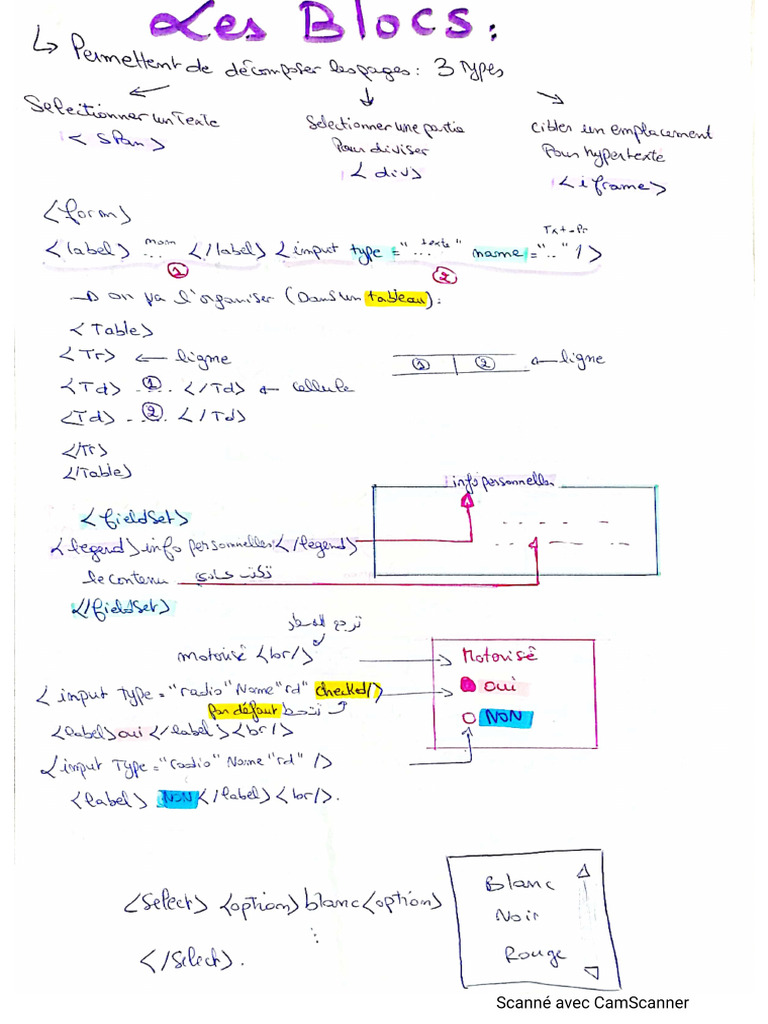 Les Blocs :
↳ Permettent de décomposer les pages : 3 Types
Selectionner un Texte
< span >
Selectionner une partie
Pour diviser
< div >
cibler un emplacement
Pour hypertexte
< iframe >
<form>
<label> nom ... </label> <input type = "texte ..." name = ".." />
① ②
→ on va l'organiser (Dans un tableau) :
<Table>
<Tr> ← ligne
① ② ← ligne
<Td> .①.. </Td> ← cellule
<Td> ..②.. </Td>
</Tr>
</Table>
info personnelles
<fieldSet>
<legend> info personnelles </legend>
le contenu تكتب عادي
</fieldSet>
ترجع للسطر
motorisé <br/>
Motorisé
<input type = "radio" Name "rd" checked/>
oui
par défaut
<label> oui </label> <br/>
NON
<input Type = "radio" Name "rd" />
<label> NON </label> <br/>.
<select> <option> blanc <option>
⋮
</select>.
Blanc
Noir
Rouge
Scanné avec CamScanner